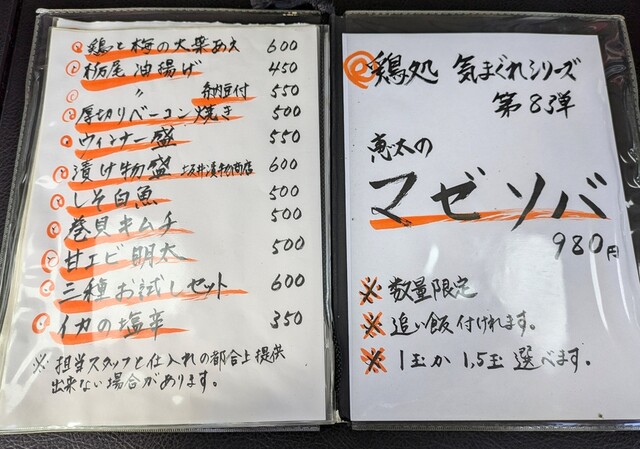 鶏と梅の大葉あえ 600
栃尾油揚げ 450
〃 納豆付 500
厚切りベーコン焼き 550
ウィンナー盛 550
漬け物盛 坂井漬物商店 600
しそ白魚 500
巻貝キムチ 500
甘エビ明太 500
三種お試しセット 600
イカの塩辛 350
※担当スタッフと仕入れの都合上提供
出来ない場合があります。
鶏処 気まぐれシリーズ
第83弾
恵太の
マゼソバ
980円
※数量限定
※追い飯付けれます。
※1玉か1.5玉選べます。